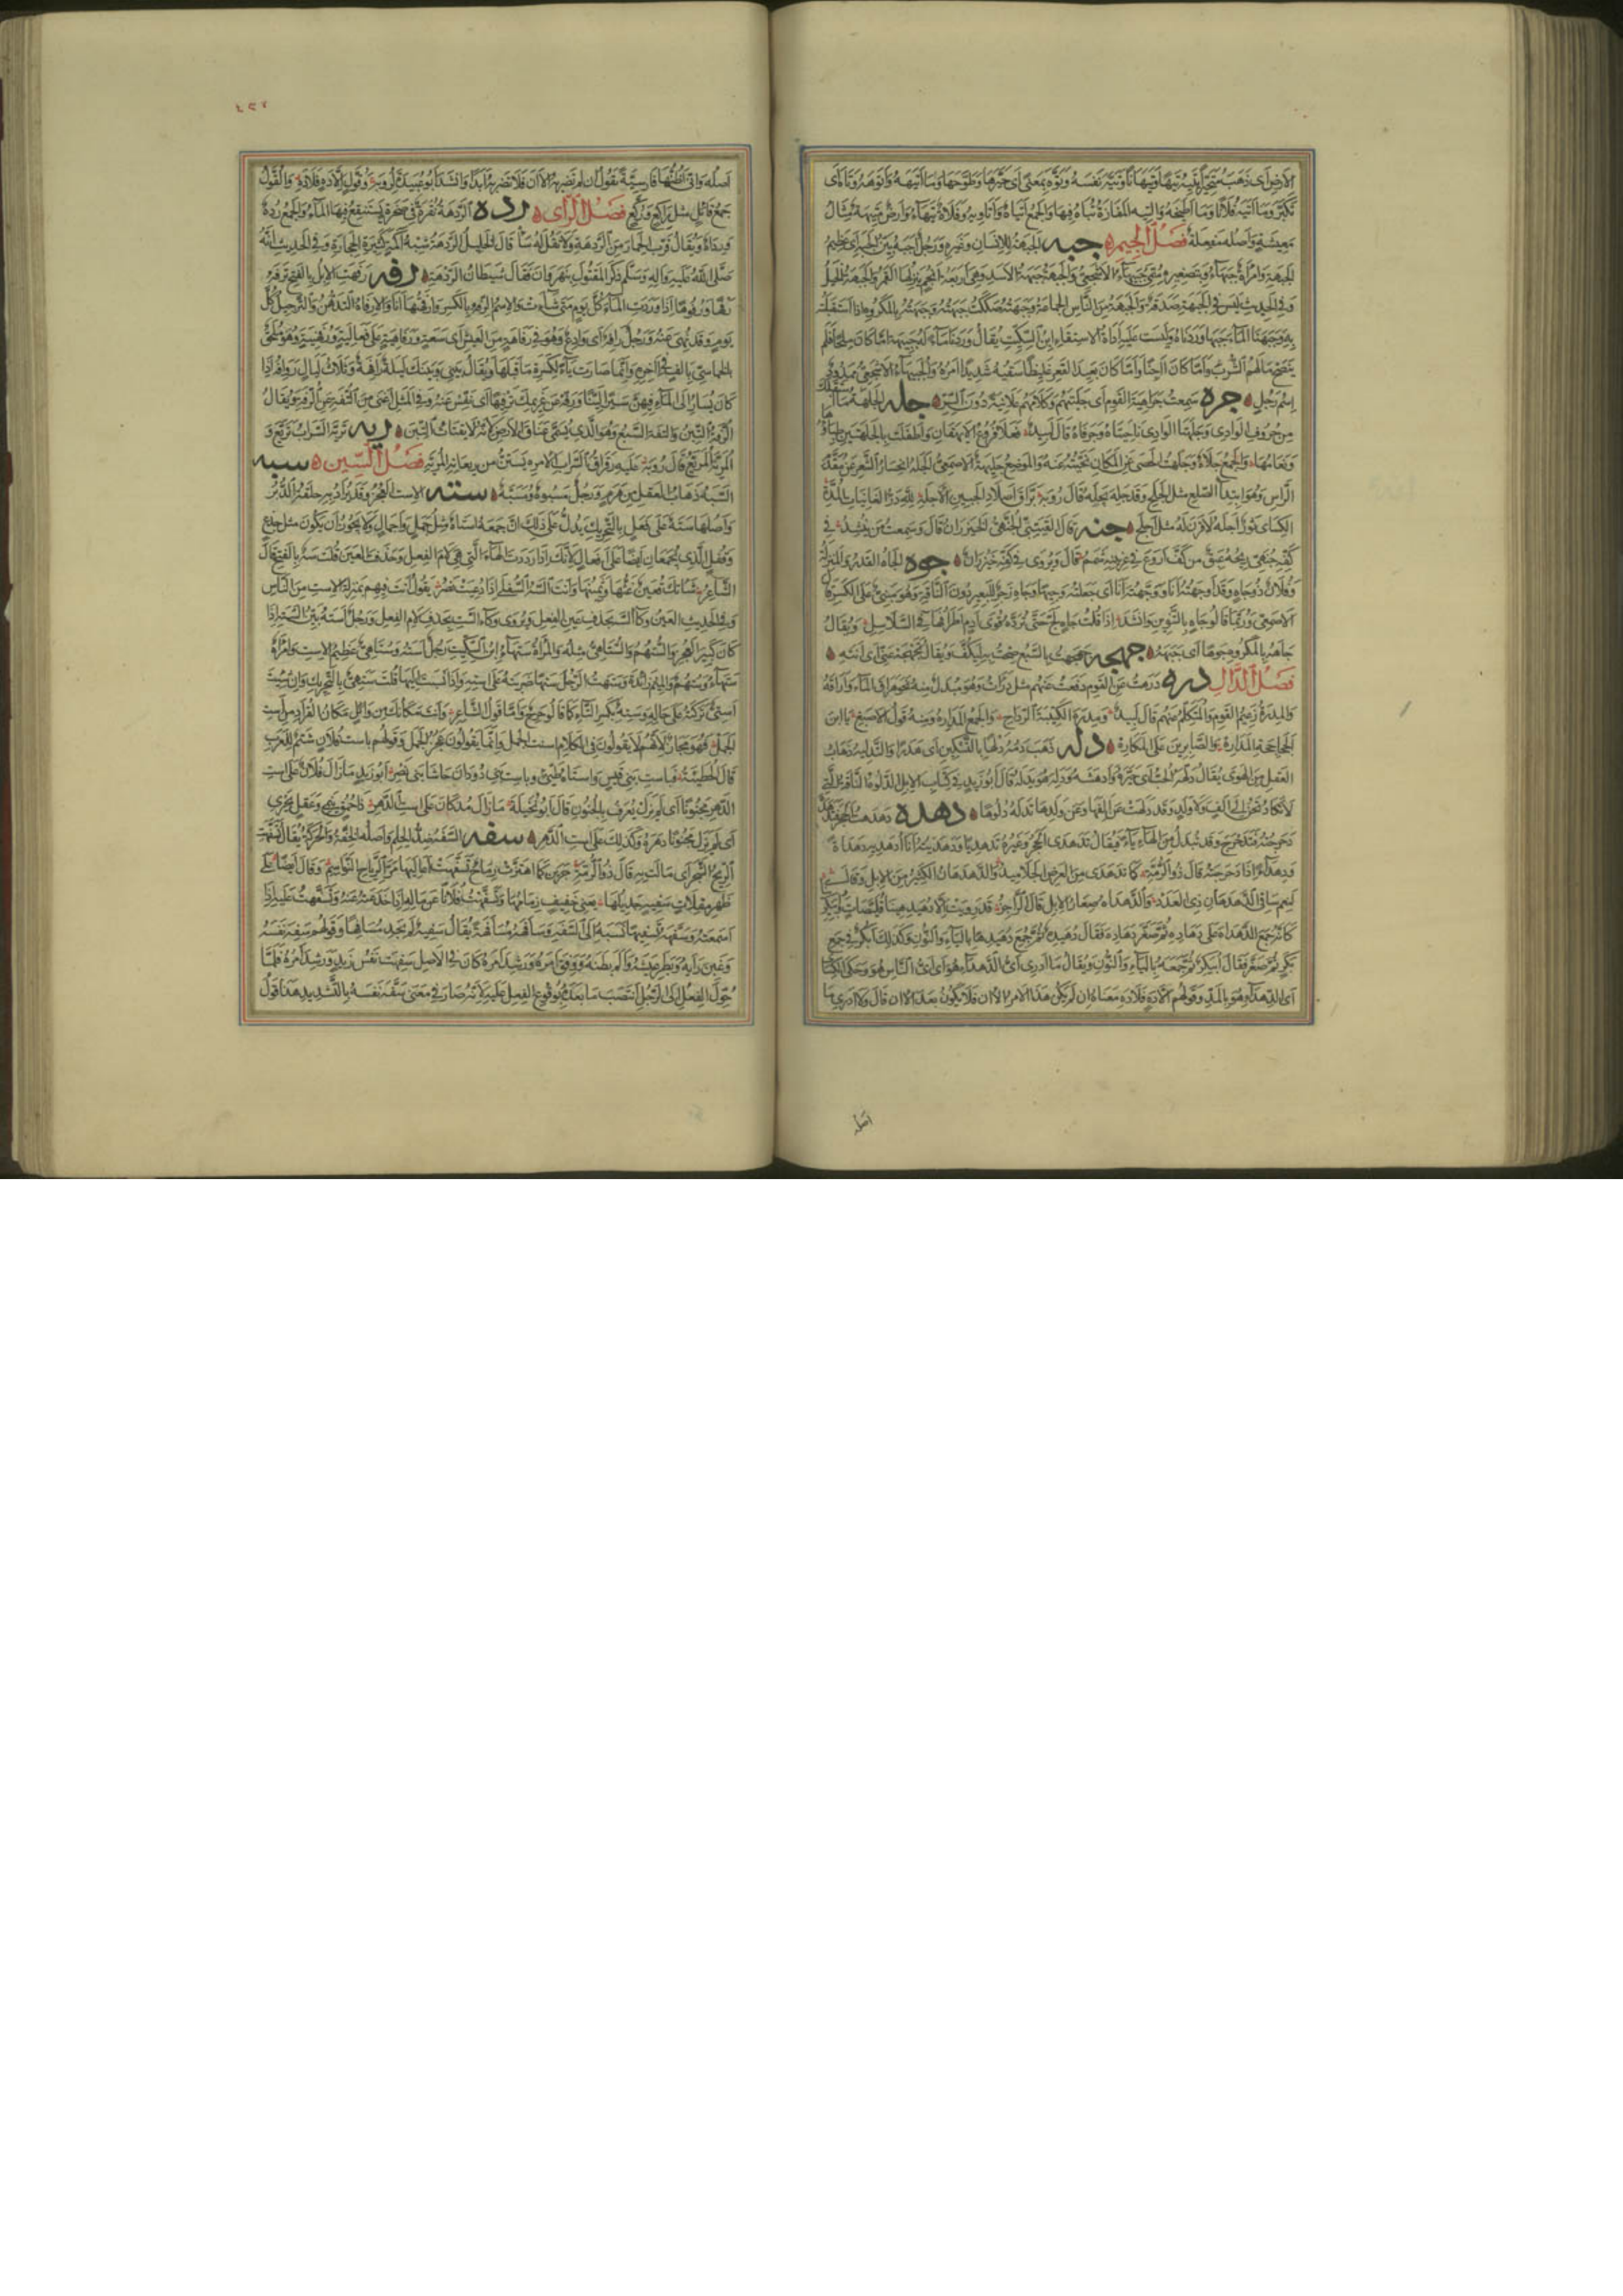 الارض اى ذهب متحيرا يتيه تيها وتيهانا وتيه نفسه وتوه بمعنى اى حيرها وطوحها وما اتيهه واتوهه وتاه اى
تكبر وما اتيه فلانا وما اطيحه والتيه المفازة يتاه فيها والجمع اتياه واتاويه وفلاة تيهاء وارض متيهة مثال
معيشة واصله مفعلة فصل الجيم جبه الجبهة للانسان وغيره ورجل اجبه بين الجبه اى عظيم
الجبهة وامراة جبهاء وبتصغيره سمى جبيهاء الاشجعى والجبهة جبهة الاسد وهى اربعة انجم ينزلها القمر والجبهة الخيل
وفى الحديث ليس فى الجبهة صدقة والجبهة من الناس الجماعة وجبهته صككت جبهته وجبهته بالمكروه اذا استقبلته
به وجبهنا الماء جبها وردناه وليست عليه اداة الاستقاء ابن السكيت يقال وردنا ماء له جبيهة اما كان ملحا فلم
ينضح مالهم الشرب واما كان آجنا واما كان بعيد القعر غليظا سقيه شديدا امره وجبيهاء الاشجعى
اسم رجل جره سمعت جراهية القوم اى جلبتهم وكلامهم علانية دون السر جله الجلهة ما استقبلك
من حروف الوادى وجلهتا الوادى ناحيتاه وجرفاه قال لبيد فعلا فروع الايهقان واطفلت بالجلهتين ظباؤها
ونعامها والجمع جلاه وجلهت الحصى عن المكان نحيته عنه والموضع جليهة الاصمعى الجله انحسار الشعر عن مقدم
الراس وهو ابتداء الصلع مثل الجلح وقد جله يجله جلها قال رؤبة براق اصلاد الجبين الاجله لله در الغانيات المده
الكساى ثور اجله لا قرن له مثل اجلح جنه قال القتيبى الجنهى الخيزران قال وسمعت من ينشد فى
كفه جنهى ريحه عبق من كف اروع فى عرنينه شمم قال ويروى فى كفه خيزران جوه الجاه القدر والمنزلة
وفلان ذو جاه وقد اوجهته انا ووجهته انا اى جعلته وجيها وجاه زجر للبعير دون الناقة وهو مبنى على الكسر قال
الاصمعى وربما قالوا جاه بالتنوين وانشد اذا قلت جاه لج حتى ترده قوى ادم اطرافها فى السلاسل ويقال
جاهه بالمكروه جوها اى جبهه جهجه جهجهت بالسبع صحت به ليكف ويقال تجهجه عنى اى انته
فصل الدال دره درهت عن القوم دفعت عنهم مثل درات وهو مبدل منه نحو هراق الماء واراقه
والمدره زعيم القوم والمتكلم عنهم قال لبيد ومدره الكتيبة الرداح والجمع المداره ومنه قول الاصبغ يا ابن
الجحاجحة المداره والصابرين على المكاره دله ذهب دمه دلها بالتسكين اى هدرا والتدليه ذهاب
العقل من الهوى يقال دلهه الحب اى حيره وادهشه ودله هو يدله قال ابو زيد فى كتاب الابل الدلوه الناقة التى
لا تكاد تحن الى الف ولا ولد وقد دلهت عن الفها وعن ولدها تدله دلوها دهده دهدهت الحجر فتدهده
دحرجته فتدحرج وقد تبدل من الهاء ياء فيقال تدهدى الحجر وغيره تدهديا ودهديته انا ادهديه دهداة
ودهداء اذا دحرجته قال ذو الرمة كما تدهدى من العرض الجلاميد والدهدهان الكثير من الابل وقال
لنعم ساقى الدهدهان ذى العدد والدهداه صغار الابل قال الراجز قد رويت الا دهيدهينا قليصات وابيكرينا
كانه جمع الدهداه على دهاده ثم صغر دهاده فقال دهيده ثم جمع دهيدها بالياء والنون وكذلك ابكر فى جمع
بكر ثم صغر فقال ابيكر ثم جمعه بالياء والنون ويقال ما ادرى اى الدهداء هو اى اى الناس هو وحكى الكساى
اى الدهداء هو بالمد وقولهم الا ده فلا ده معناه ان لم يكن هذا الامر الان فلا يكون بعد الان قال ولا ادرى ما
اصله
٤٢٢
اصله وانى اظنها فارسية تقول ان لم تضربه الان فلا تضربه ابدا وانشد ابو عبيدة لرؤبة وقول الا ده فلا ده والقول
جمع قائل مثل راكع وركع فصل الراى رده الردهة نقرة فى صخرة يستنقع فيها الماء والجمع رده
ورداه ويقال قرب الحمار من الردهة ولا تقل له سا قال الخليل الردهة شبه اكمة كثيرة الحجارة وفى الحديث انه
صلى الله عليه واله وسلم ذكر المقتول بنهروان فقال شيطان الردهة رفه رفهت الابل بالفتح ترفه
رفها ورفوها اذا وردت الماء كل يوم متى شاءت والاسم الرفه بالكسر وارفهتها انا والارفاه التدهن والترجيل كل
يوم وقد نهى عنه ورجل رافه اى وادع وهو فى رفاهة من العيش اى سعة ورفاهية على فعالية ورفهنية وهو ملحق
بالخماسى بالف فى اخره وانما صارت ياء لكسرة ما قبلها ويقال بينى وبينك ليلة رافهة وثلاث ليال روافه اذا
كان يسار الى الماء فيهن سيرا لينا ورفه عن غريمك ترفيها اى نفس عنه وفى المثل اغنى من التفه عن الرفه ويقال
الرفه التبن والتفه السبع وهو الذى يسمى عناق الارض لانه لا يقتات التبن ريه تريه السراب تريع و
المريه المريع قال رؤبة عليه رقراق السراب الامره يستن من ريعانه المريه فصل السين سبه
السبه ذهاب العقل من هرم ورجل مسبوه ومسبه سته الاست العجز وقد يراد به حلقة الدبر
واصلها سته على فعل بالتحريك يدل على ذلك ان جمعه استاه مثل جمل واجمال ولا يجوز ان يكون مثل جذع
وقفل اللذين يجمعان ايضا على افعال لانك اذا رددت الهاء التى هى لام الفعل وحذفت العين قلت سه بالفتح قال
الشاعر شاتك قعين غثها وسمينها وانت السه السفلى اذا دعيت نصر يقول انت فيهم بمنزلة الاست من الناس
وفى الحديث العين وكاء السه بحذف عين الفعل ويروى وكاء الست بحذف لام الفعل ورجل استه بين السته اذا
كان كبير العجز والستهم والستاهى مثله والمراة ستهاء ابن السكيت رجل استه وستاهى عظيم الاست وامراة
ستهاء وستهم والميم زائدة وستهت الرجل ستها ضربته على استه واذا نسبت اليها قلت ستهى بالتحريك وان شئت
استى تركته على حاله وسته بكسر التاء كما قالوا حرح واما قول الشاعر وانت مكانك من وائل مكان القراد من است
الجمل فهو مجاز لانهم لا يقولون فى الكلام است الجمل وانما يقولون عجز الجمل وقولهم باست فلان شتم للعرب
قال الحطيئة فباست بنى قيس واستاه طيئ وباست بنى دودان حاشا بنى نصر ابو زيد ما زال فلان على است
الدهر مجنونا اى لم يزل يعرف بالجنون قال ابو نخيلة ما زال مذ كان على است الدهر ذا حمق ينمى وعقل يحرى
اى لم يزل مجنونا دهره وكذلك على است الدهر سفه السفه ضد الحلم واصله الخفة والحركة يقال تسفهت
الريح الشجر اى مالت به قال ذو الرمة جرين كما اهتزت رماح تسفهت اعاليها مر الرياح النواسم وقال ايضا على
ظهر مقلات سفيه جديلها يعنى خفيف زمامها وتسفهت فلانا عن ماله اذا خدعته عنه وتسفهت عليه اذا
اسمعته وسفهه تسفيها نسبه الى السفه وسافهه مسافهة يقال سفيه لم يجد مسافها وقولهم سفه نفسه
وغبن رايه وبطر عيشه والم بطنه ووفق امره ورشد امره كان فى الاصل سفهت نفس زيد ورشد امره فلما
حول الفعل الى الرجل انتصب ما بعده بوقوع الفعل عليه لانه صار فى معنى سفه نفسه بالتشديد هذا قول